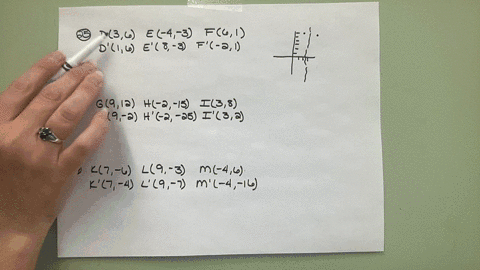 25 D(3,6) E(-4,-3) F(6,1)
D'(1,6) E'(8,-3) F'(-2,1)
G(9,12) H(-2,-15) I(3,8)
(9,-2) H'(-2,-25) I'(3,2)
K(7,-6) L(9,-3) M(-4,6)
K'(7,-4) L'(9,-7) M'(-4,-16)